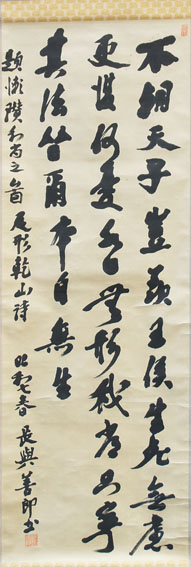 不朝天子豈羨王侯生死無慮
更復何憂水月無形我常只寧
萬法皆爾本自無生
題懶瓚和尚之圖 尾形乾山詩 昭和七春 長與善郎書